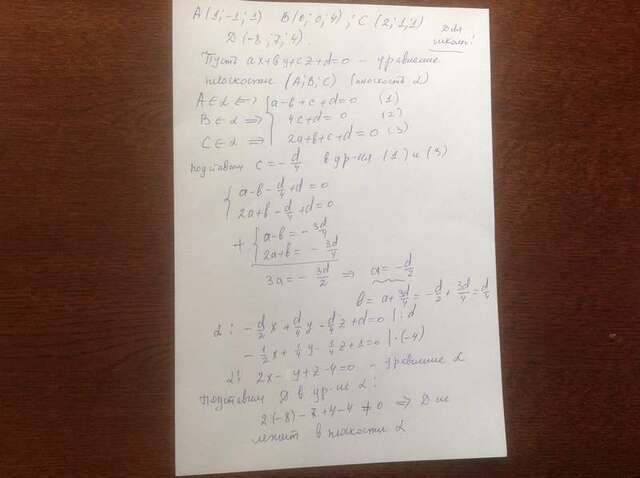 A(1;-1;1) B(0;0;4); C(2;1;1)
D(-8;7;4).
Для школы!
Пусть ax+by+cz+d=0 - уравнение
плоскости (A;B;C) (плоскость α)
A∈α ⇔ a-b+c+d=0 (1)
B∈α ⇒ 4c+d=0 (2)
C∈α ⇒ 2a+b+c+d=0 (3)
подставим c=-d/4 в ур-ия (1) и (3)
a-b-d/4+d=0
2a+b-d/4+d=0
+ a-b=-3d/4
2a+b=-3d/4
3a=-3d/2 ⇒ a=-d/2
b=a+3d/4=-d/2+3d/4=d/4
α: -d/2x+d/4y-d/4z+d=0 |:d
-1/2x+1/4y-1/4z+1=0 |·(-4)
α: 2x-y+z-4=0 - уравнение α
Подставим D в ур-ие α:
2(-8)-7+4-4≠0 ⇒ D не
лежит в плоскости α